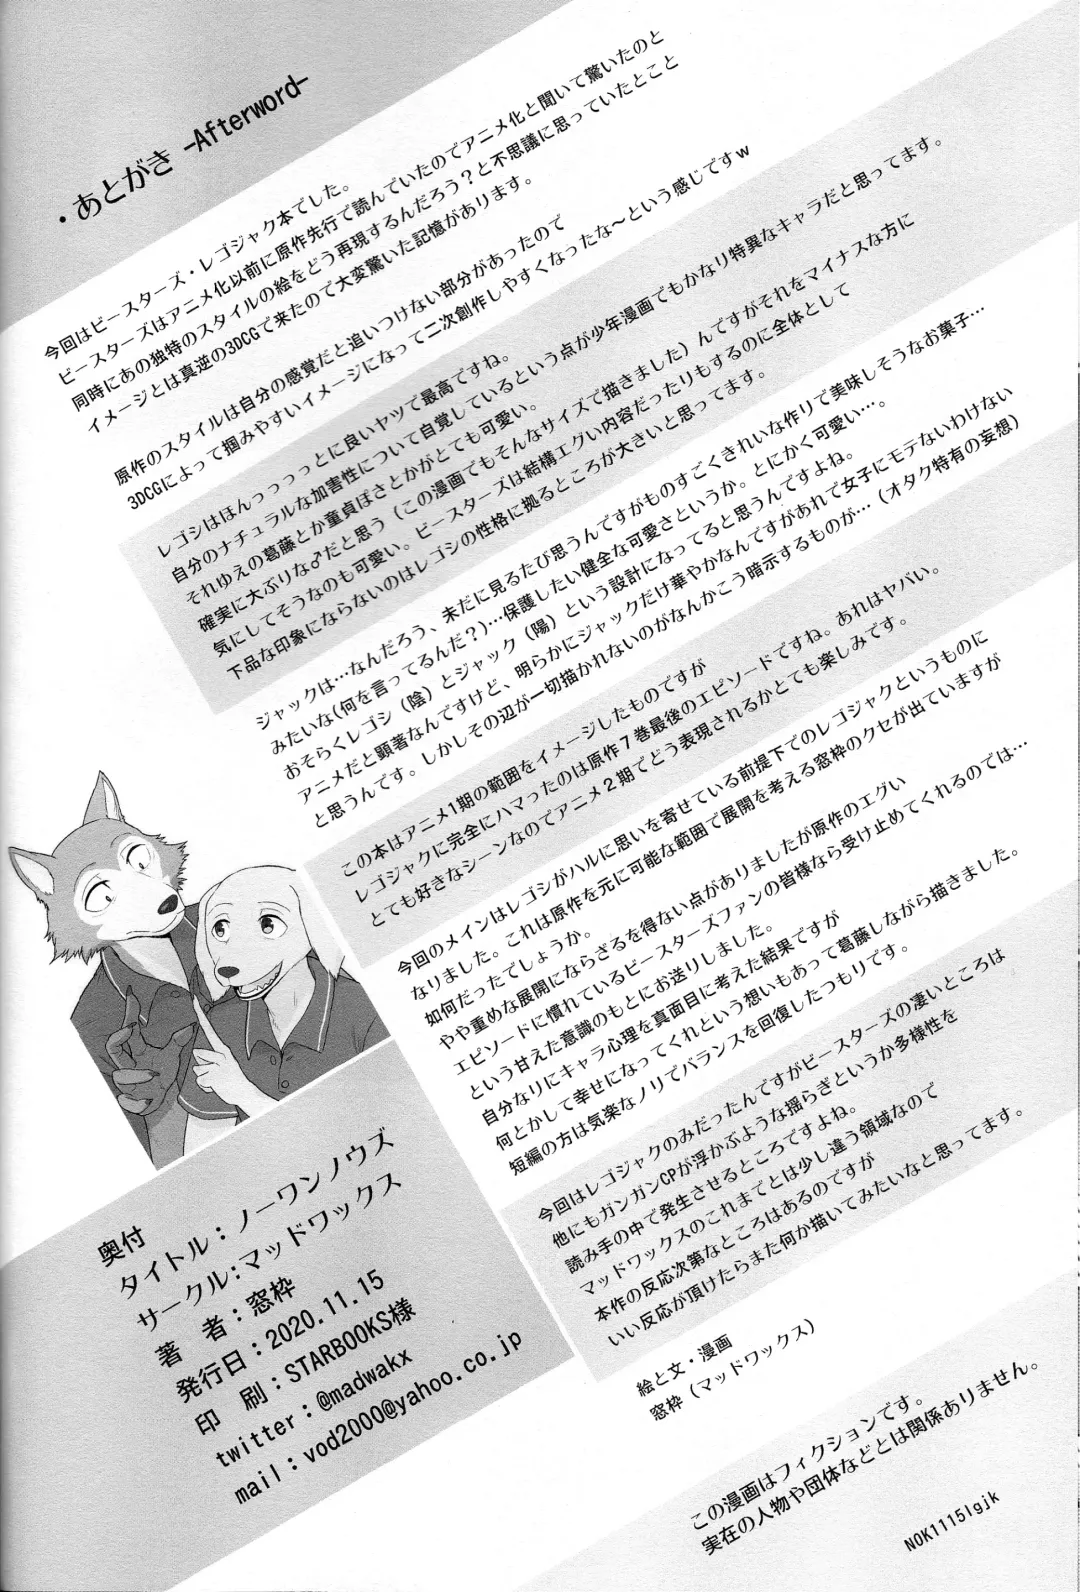 ・あとがき -Afterword-
今回はビースターズ・レゴジャク本でした。
ビースターズはアニメ化以前に原作先行で読んでいたのでアニメ化と聞いて驚いたのと
同時にあの独特のスタイルの絵をどう再現するんだろう？と不思議に思っていたとこと
イメージとは真逆の3DCGで来たので大変驚いた記憶があります。
原作のスタイルは自分の感覚だと追いつけない部分があったので
3DCGによって掴みやすいイメージになって二次創作しやすくなったな～という感じですｗ
レゴシはほんっっっっとに良いヤツで最高ですね。
自分のナチュラルな加害性について自覚しているという点が少年漫画でもかなり特異なキャラだと思ってます。
それゆえの葛藤とか童貞ぽさとかがとても可愛い。
確実に大ぶりな♂だと思う（この漫画でもそんなサイズで描きました）んですがそれをマイナスな方に
気にしてそうなのも可愛い。ビースターズは結構エグい内容だったりもするのに全体として
下品な印象にならないのはレゴシの性格に拠るところが大きいと思ってます。
ジャックは…なんだろう、未だに見るたび思うんですがものすごくきれいな作りで美味しそうなお菓子…
みたいな(何を言ってるんだ？)…保護したい健全な可愛さというか。とにかく可愛い…。
おそらくレゴシ（陰）とジャック（陽）という設計になってると思うんですよね。
アニメだと顕著なんですけど、明らかにジャックだけ華やかなんですがあれで女子にモテないわけない
と思うんです。しかしその辺が一切描かれないのがなんかこう暗示するものが…（オタク特有の妄想）
この本はアニメ1期の範囲をイメージしたものですが
レゴジャクに完全にハマったのは原作７巻最後のエピソードですね。あれはヤバい。
とても好きなシーンなのでアニメ２期でどう表現されるかとても楽しみです。
今回のメインはレゴシがハルに思いを寄せている前提下でのレゴジャクというものに
なりました。これは原作を元に可能な範囲で展開を考える窓枠のクセが出ていますが
如何だったでしょうか。
やや重めな展開にならざるを得ない点がありましたが原作のエグい
エピソードに慣れているビースターズファンの皆様なら受け止めてくれるのでは…
という甘えた意識のもとにお送りしました。
自分なりにキャラ心理を真面目に考えた結果ですが
何とかして幸せになってくれという想いもあって葛藤しながら描きました。
短編の方は気楽なノリでバランスを回復したつもりです。
今回はレゴジャクのみだったんですがビースターズの凄いところは
他にもガンガンCPが浮かぶような揺らぎというか多様性を
読み手の中で発生させるところですよね。
マッドワックスのこれまでとは少し違う領域なので
本作の反応次第なところはあるのですが
いい反応が頂けたらまた何か描いてみたいなと思ってます。
絵と文・漫画
窓枠（マッドワックス）
この漫画はフィクションです。
実在の人物や団体などとは関係ありません。
NOK1115lgjk
奥付
タイトル：ノーワンノウズ
サークル：マッドワックス
著　者：窓枠
発行日：2020.11.15
印　刷：STARBOOKS様
twitter：@madwakx
mail：vod2000@yahoo.co.jp